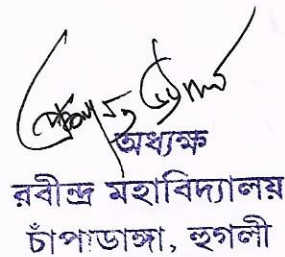 অধ্যক্ষ
রবীন্দ্র মহাবিদ্যালয়
চাঁপাডাঙ্গা, হুগলী